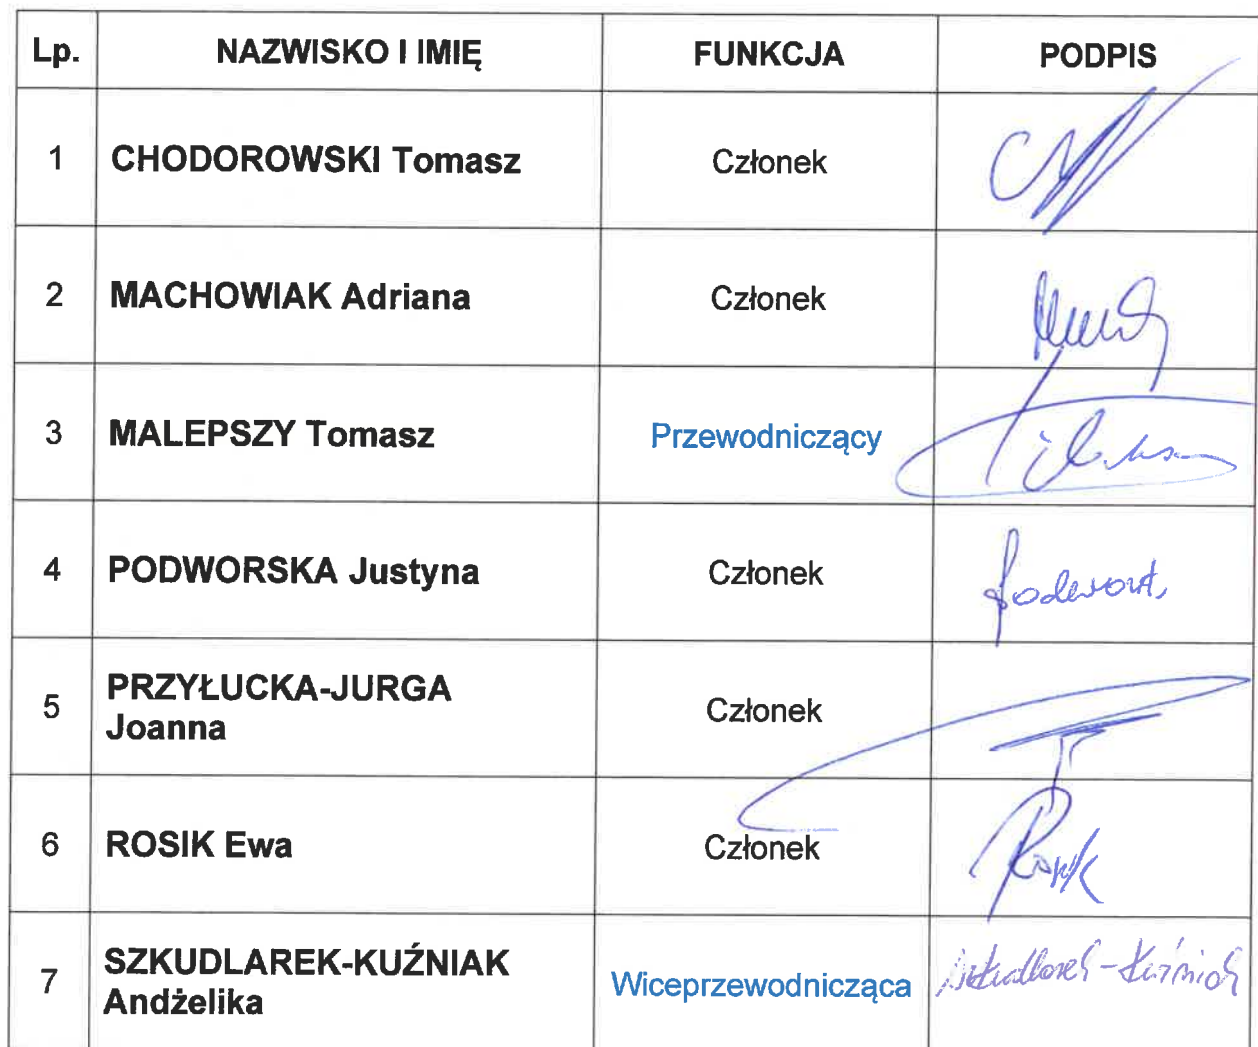 Lp. NAZWISKO I IMIĘ FUNKCJA PODPIS
1 CHODOROWSKI Tomasz Członek
2 MACHOWIAK Adriana Członek
3 MALEPSZY Tomasz Przewodniczący
4 PODWORSKA Justyna Członek
5 PRZYŁUCKA-JURGA
Joanna Członek
6 ROSIK Ewa Członek
7 SZKUDLAREK-KUŹNIAK
Andżelika Wiceprzewodnicząca Szkudlarek-Kuźniak